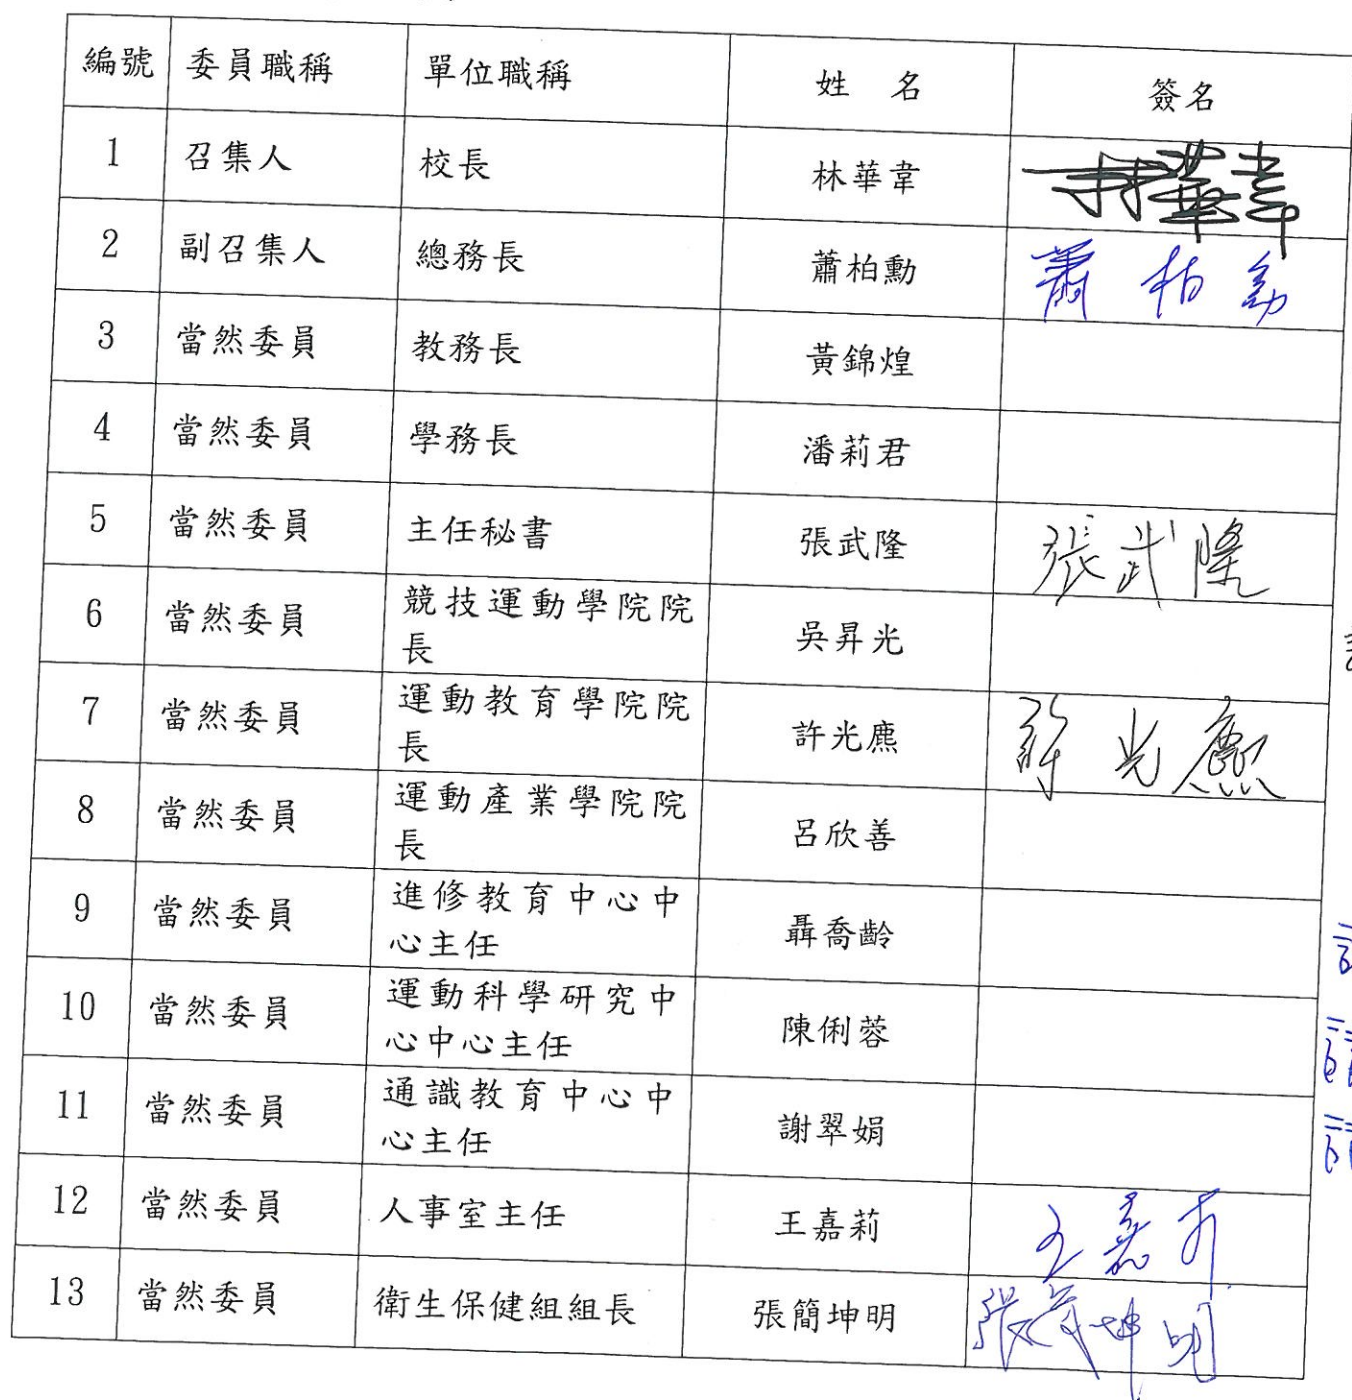 編號 委員職稱 單位職稱 姓 名 簽名
1 召集人 校長 林華韋 林華韋
2 副召集人 總務長 蕭柏勳 蕭柏勳
3 當然委員 教務長 黃錦煌
4 當然委員 學務長 潘莉君
5 當然委員 主任秘書 張武隆 張武隆
6 當然委員 競技運動學院院
長 吳昇光
7 當然委員 運動教育學院院
長 許光麃 許光麃
8 當然委員 運動產業學院院
長 呂欣善
9 當然委員 進修教育中心中
心主任 聶喬齡
10 當然委員 運動科學研究中
心中心主任 陳俐蓉
11 當然委員 通識教育中心中
心主任 謝翠娟
12 當然委員 人事室主任 王嘉莉 王嘉莉
13 當然委員 衛生保健組組長 張簡坤明 張簡坤明